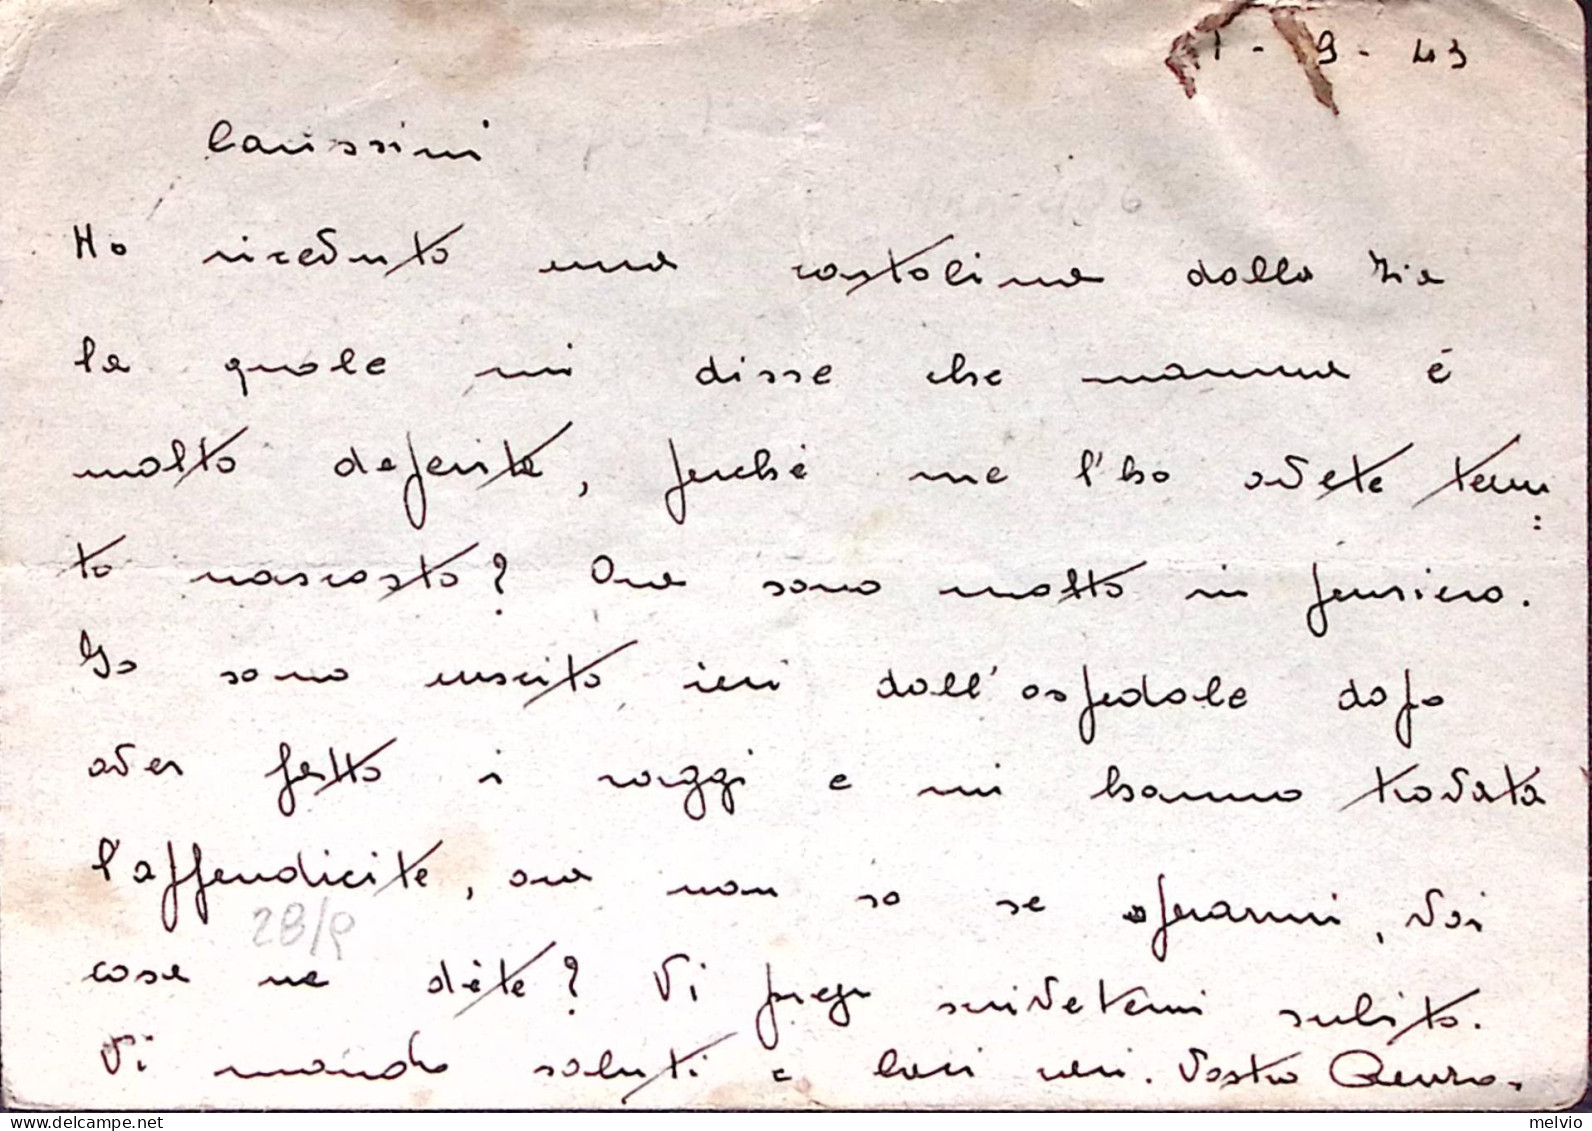 - 9 - 43
Carissimi
Ho riceduto una cartolina dalla Zia
la quale mi disse che mamma é
molto deperita, perché me l'ho avete tenu
to nascosto? Ora sono molto in pensiero.
Io sono uscito ieri dall'ospedale dopo
aver fatto i raggi e mi hanno trovata
l'appendicite, ora non so se operarmi, Voi
28/9
cosa ne dite? Vi prego scrivetemi subito.
Vi mando saluti e baci cari. Vostro Renzo.
melvio